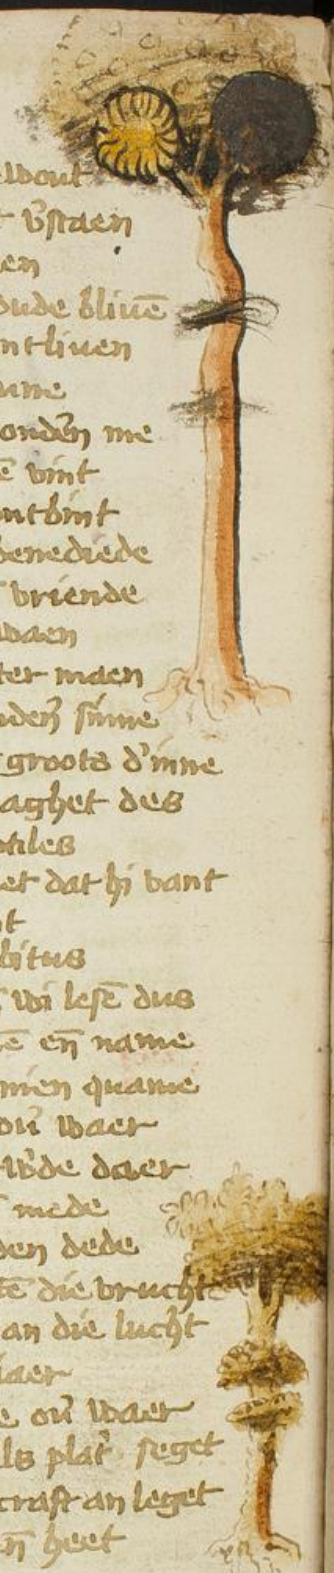 wout
v̄staen
en
oude bliuē
ntliuen
inne
onden̄ me
ē vint
ontbint
benediede
vriende
waen
ter maen
nden̄ sinne
groots d'inne
aghet des
otiles
et dat hi vant
t
bitus
wi lesē dus
ē en̄ name
men quame
ou̅ waer
w'de daer
mede
den dede
tē die vrucht
an die lucht
iaer
e ou̅ waer
ls plat' seget
craft an leget
n̄ heet